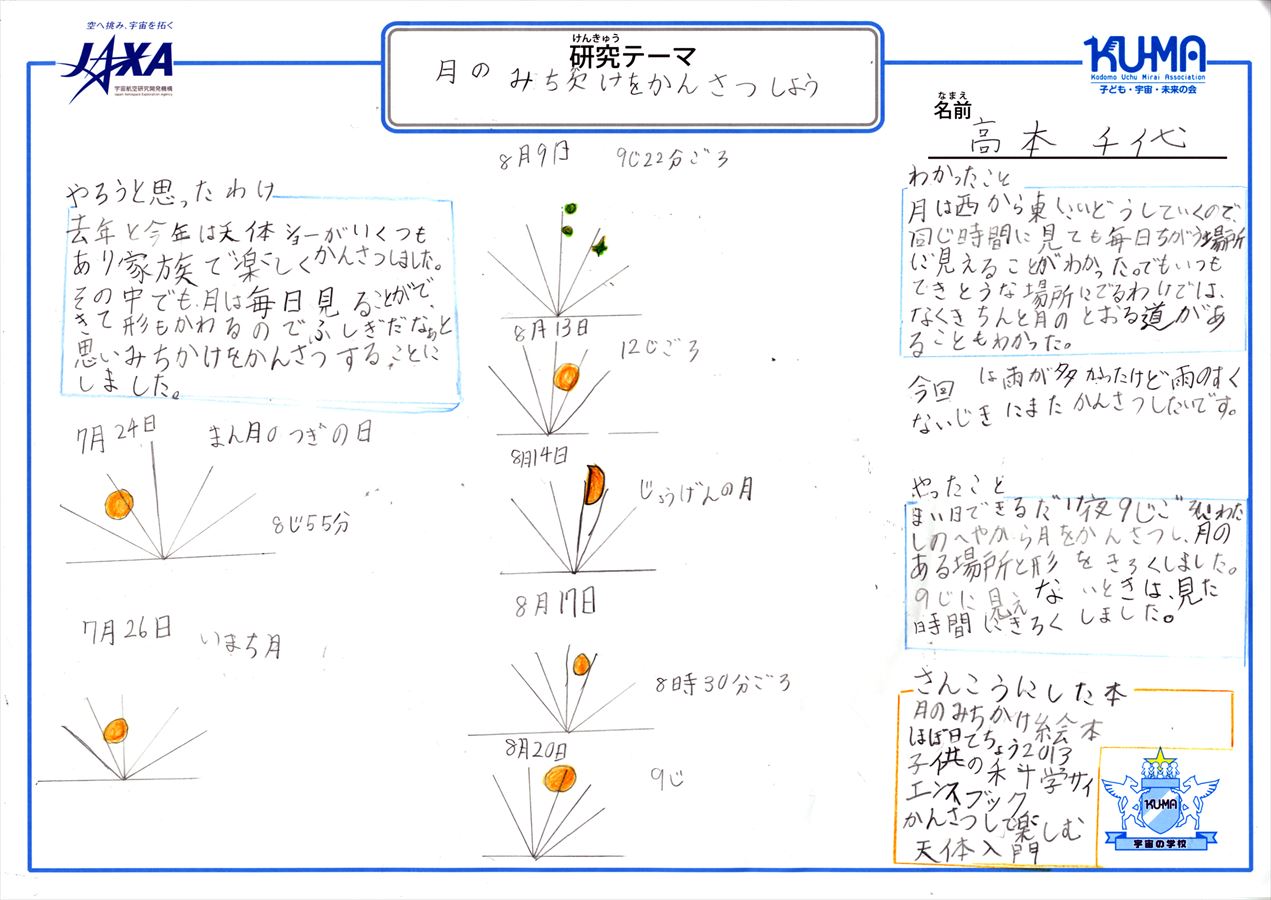 空へ挑み、宇宙を拓く
JAXA
宇宙航空研究開発機構
Japan Aerospace Exploration Agency
けんきゅう
研究テーマ
月の みち欠けをかんさつしよう
KU-MA
Kodomo Uchu Mirai Association
子ども・宇宙・未来の会
なまえ
名前
高本 千代
やろうと思ったわけ
去年と今年は天体ショーがいくつも
あり家族で楽しくかんさつしました。
その中でも月は毎日見ることがで、
きて形もかわるのでふしぎだなぁと
思いみちかけをかんさつすることに
しました。
7月24日 まん月のつぎの日
8じ55分
7月26日 いまち月
8月9日 9じ22分ごろ
8月13日
12じごろ
8月14日
じょうげんの月
8月17日
8時30分ごろ
8月20日
9じ
わかったこと
月は西から東にいどうしていくので、
同じ時間に見ても毎日ちがう場所
に見えることがわかった。でもいつも
てきとうな場所にでるわけでは、
なくきちんと月のとおる道があ
ることもわかった。
今回は雨が多かったけど雨のすく
ないじきにまたかんさつしたいです。
やったこと
まい日できるだけ夜9じごろにわた
しのへやから月をかんさつし、月の
ある場所と形をきろくしました。
9じに見えないときは、見た
時間にきろくしました。
さんこうにした本
月のみちかけ絵本
ほぼ日てちょう2013
子供の科学サイ
エンスブック
かんさつして楽しむ
天体入門
KU-MA
宇宙の学校